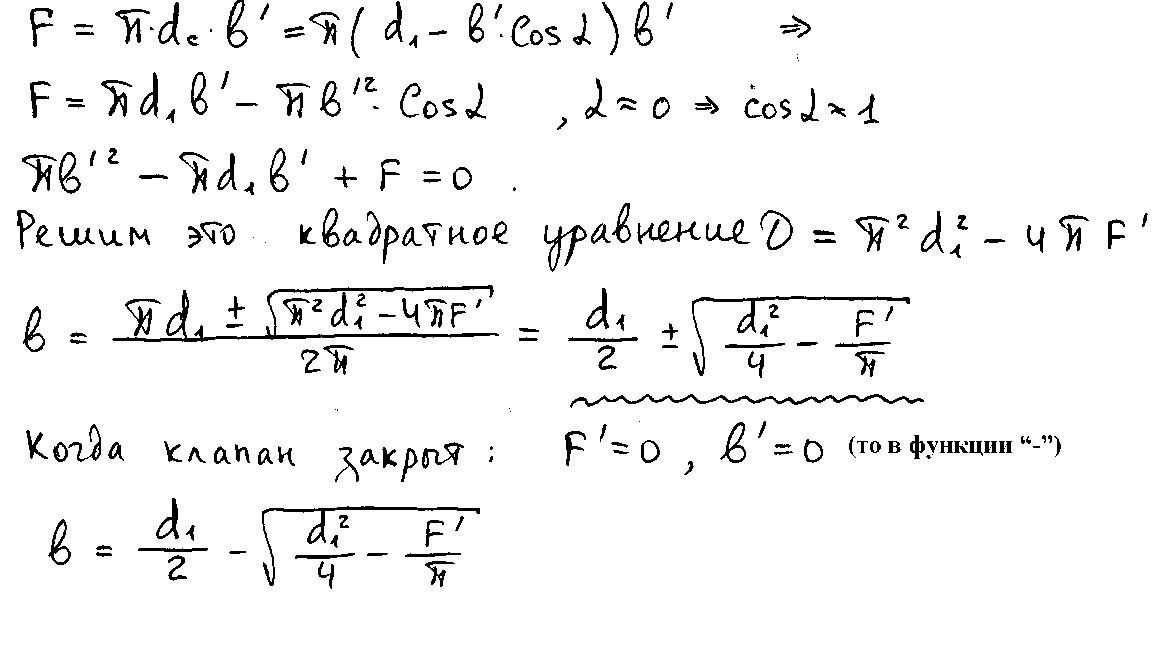 F = π·d_c·в' = π(d₁ − в'·cosα)в' ⇒
F = πd₁в' − πв'²·cosα , α ≈ 0 ⇒ cosα ≈ 1
πв'² − πd₁в' + F = 0 .
Решим это квадратное уравнение D = π²d₁² − 4πF'
в = (πd₁ ± √(π²d₁² − 4πF')) / 2π = d₁/2 ± √(d₁²/4 − F'/π)
Когда клапан закрыт: F' = 0 , в' = 0 (то в функции “-”)
в = d₁/2 − √(d₁²/4 − F'/π)